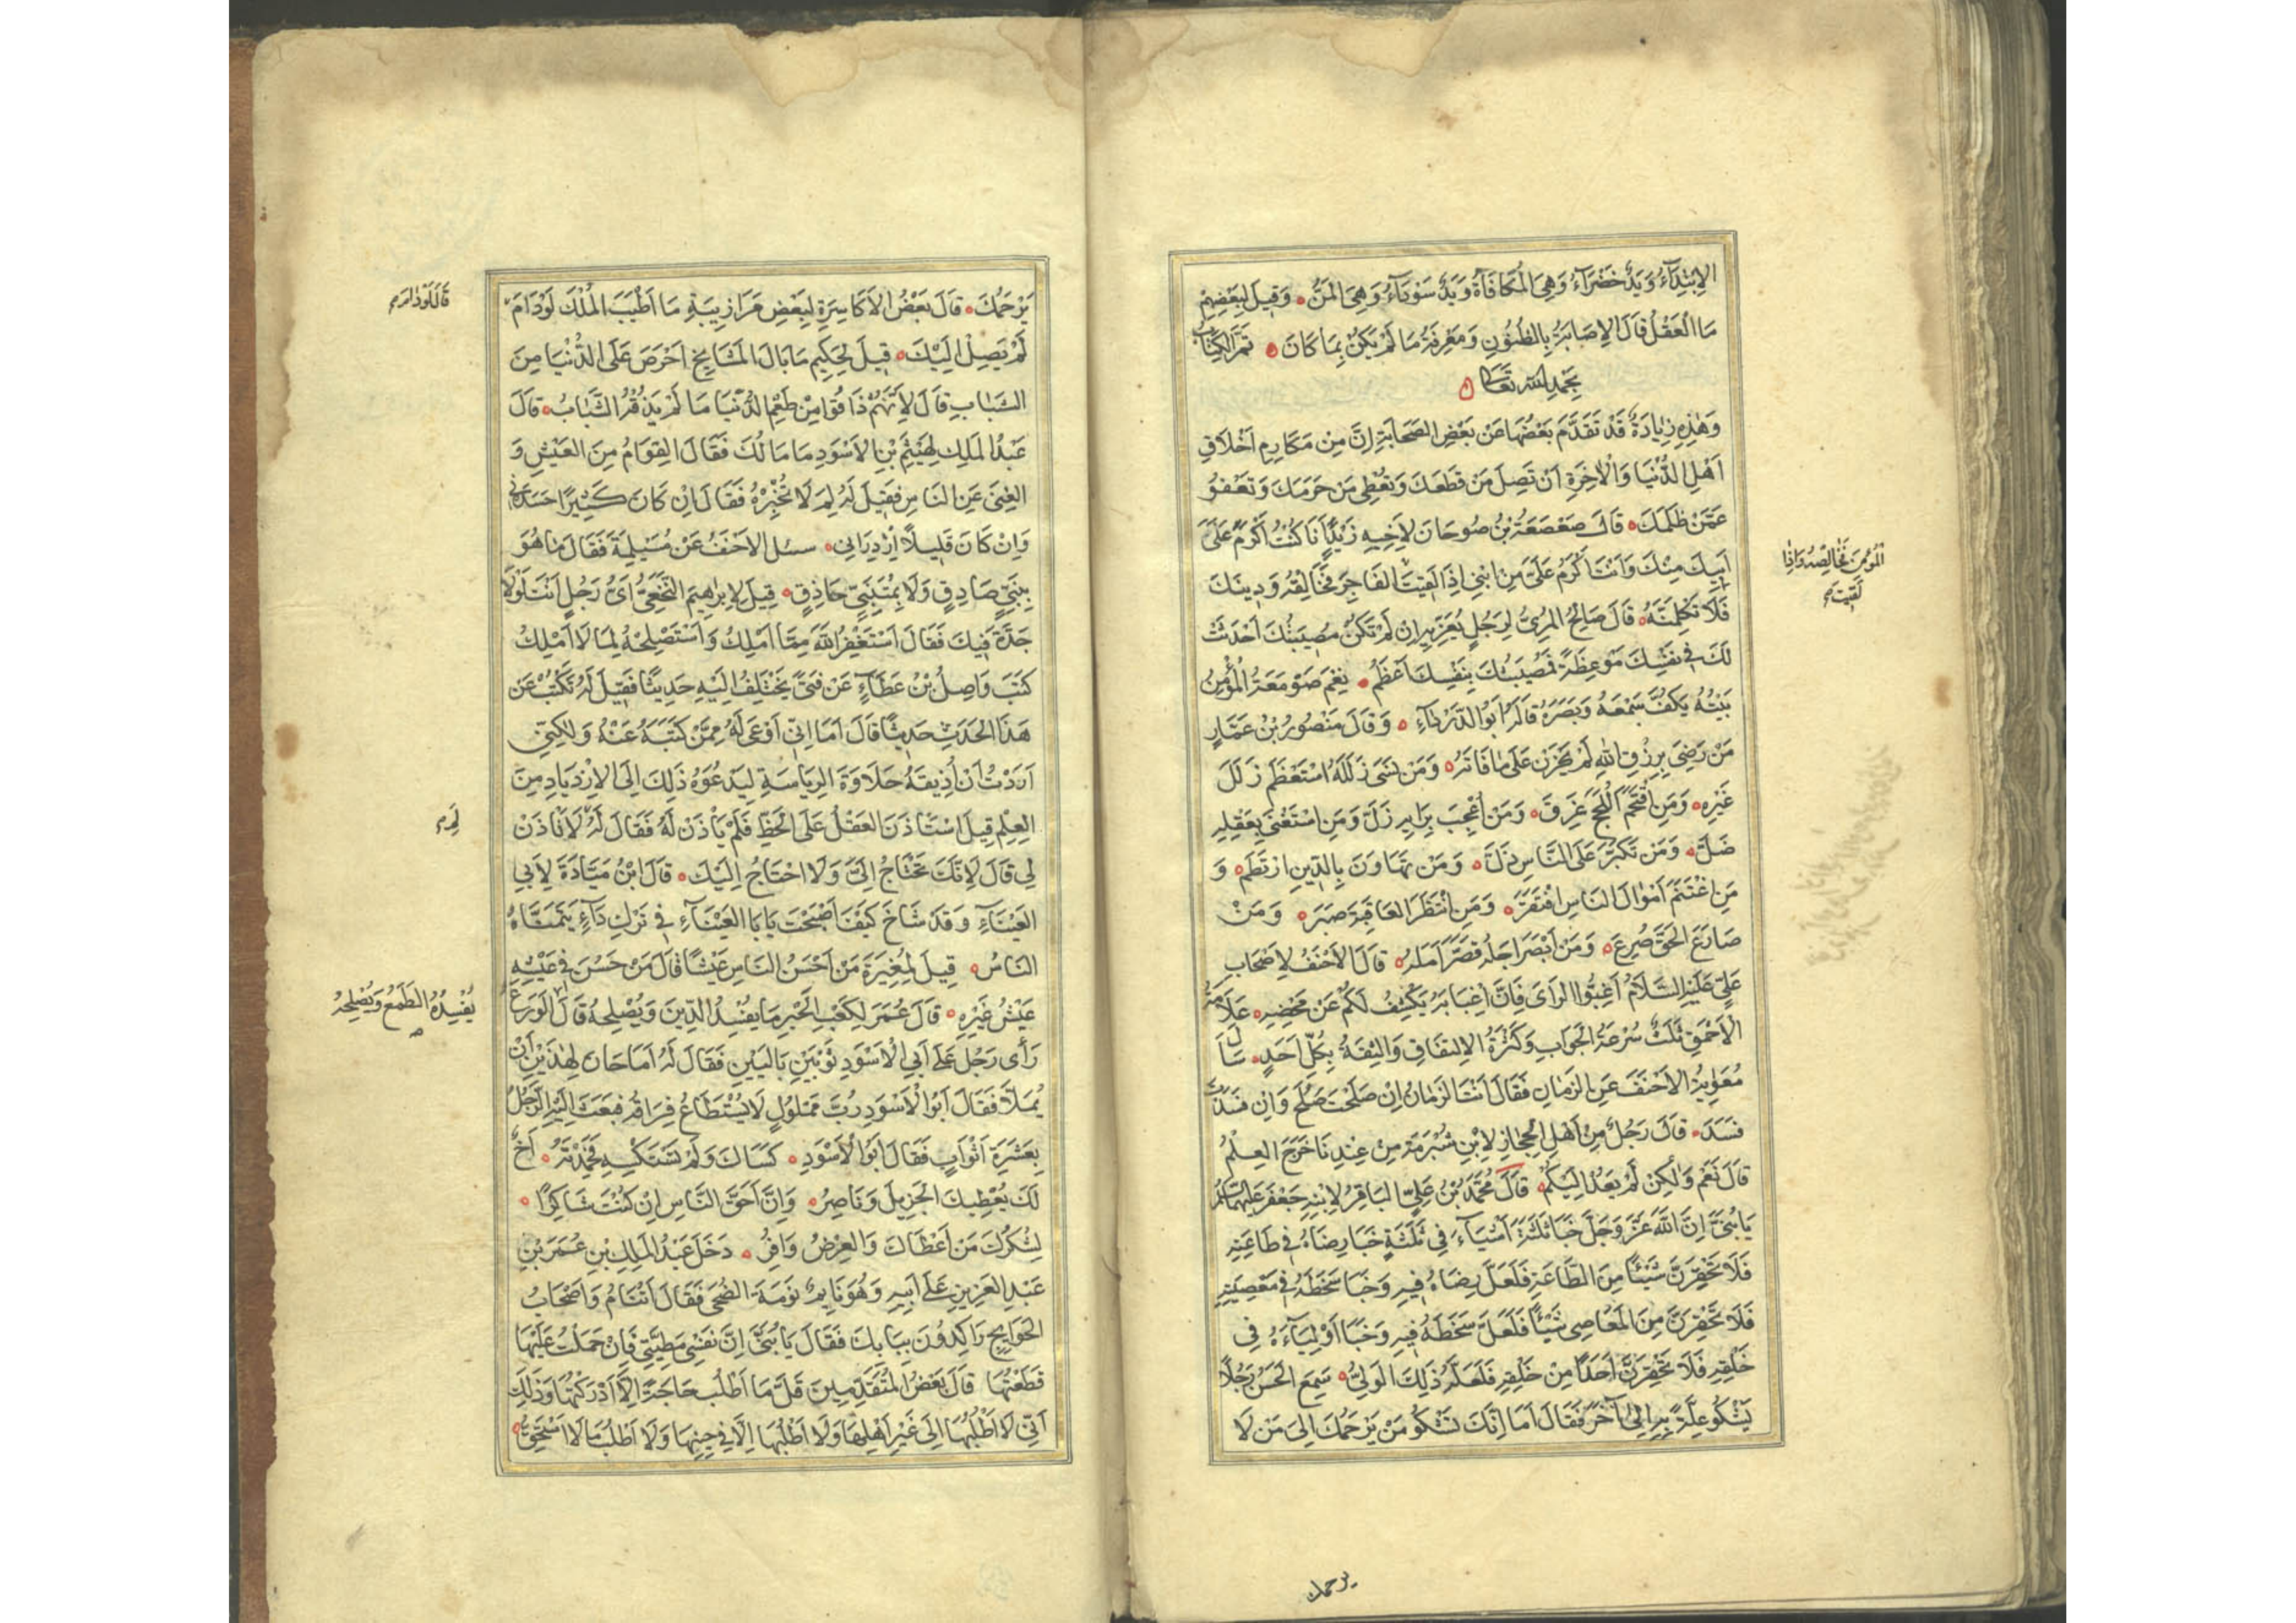 الاِبْتِدَآءُ وَيَدٌ خَضْرَآءُ وَهِىَ الْمُكَافَاةُ وَيَدٌ سَوْدَآءُ وَهِىَ الْمَنُّ وَقِيلَ لِبَعْضِهِمْ
مَا الْعَقْلُ قَالَ الاِصَابَةُ بِالظُّنُونِ وَمَعْرِفَةُ مَا لَمْ يَكُنْ بِمَا كَانَ تَمَّ الْكِتَابُ
بِحَمْدِ اللهِ تَعَالَى
وَهٰذِهِ زِيَادَةٌ قَدْ تَقَدَّمَ بَعْضُهَا عَنْ بَعْضِ الصَّحَابَةِ اِنَّ مِنْ مَكَارِمِ اَخْلَاقِ
اَهْلِ الدُّنْيَا وَالْاٰخِرَةِ اَنْ تَصِلَ مَنْ قَطَعَكَ وَتُعْطِى مَنْ حَرَمَكَ وَتَعْفُوْ
عَمَّنْ ظَلَمَكَ قَالَ صَعْصَعَةُ بْنُ صُوحَانَ لِاَخِيهِ زَيْدٍ اَنَا كُنْتُ اَكْرَمَ عَلَى
اَبِيكَ مِنْكَ وَاَنْتَ اَكْرَمُ عَلَىَّ مِنِ ابْنِى اِذَا لَقِيتَ الْفَاجِرَ فَخَالِقْهُ وَدِينَكَ
فَلَا تَكْلِمَنَّهُ قَالَ صَالِحُ الْمُرِىُّ لِرَجُلٍ يُعَزِّيهِ اِنْ لَمْ تَكُنْ مُصِيبَتُكَ اَحْدَثَتْ
لَكَ فِى نَفْسِكَ مَوْعِظَةً فَمُصِيبَتُكَ بِنَفْسِكَ اَعْظَمُ نِعْمَ صَوْمَعَةُ الْمُؤْمِنِ
بَيْتُهُ يَكُفُّ سَمْعَهُ وَبَصَرَهُ قَالَهُ اَبُو الدَّرْدَآءِ وَقَالَ مَنْصُورُ بْنُ عَمَّارٍ
مَنْ رَضِىَ بِرِزْقِ اللهِ لَمْ يَحْزَنْ عَلَى مَا فَاتَهُ وَمَنْ نَسِىَ زَلَلَهُ اسْتَعْظَمَ زَلَلَ
غَيْرِهِ وَمَنِ اقْتَحَمَ اللُّجَجَ غَرِقَ وَمَنْ اُعْجِبَ بِرَايِهِ زَلَّ وَمَنِ اسْتَغْنَى بِعَقْلِهِ
ضَلَّ وَمَنْ تَكَبَّرَ عَلَى النَّاسِ ذَلَّ وَمَنْ تَهَاوَنَ بِالدِّينِ ارْتَطَمَ وَ
مَنِ اغْتَنَمَ اَمْوَالَ النَّاسِ افْتَقَرَ وَمَنِ انْتَظَرَ الْعَاقِبَةَ صَبَرَ وَمَنْ
صَارَعَ الْحَقَّ صُرِعَ وَمَنْ اَبْصَرَ اَجَلَهُ قَصَّرَ اَمَلَهُ قَالَ الْاَحْنَفُ لِاَصْحَابِ
عَلِىٍّ عَلَيْهِ السَّلَامُ اَغِبُّوا الرَّاىَ فَاِنَّ اِغْبَابَهُ يَكْشِفُ لَكُمْ عَنْ مَحْضِهِ عَلَامَةُ
الْاَحْمَقِ ثَلٰثٌ سُرْعَةُ الْجَوَابِ وَكَثْرَةُ الْاِلْتِفَاتِ وَالثِّقَةُ بِكُلِّ اَحَدٍ سَاَلَ
مُعٰوِيَةُ الْاَحْنَفَ عَنِ الزَّمَانِ فَقَالَ اَنْتَ الزَّمَانُ اِنْ صَلَحْتَ صَلَحَ وَاِنْ فَسَدْتَ
فَسَدَ قَالَ رَجُلٌ مِنْ اَهْلِ الْحِجَازِ لِابْنِ شُبْرُمَةَ مِنْ عِنْدِنَا خَرَجَ الْعِلْمُ
قَالَ نَعَمْ وَلٰكِنْ لَمْ يَعُدْ اِلَيْكُمْ قَالَ مُحَمَّدُ بْنُ عَلِىٍّ الْبَاقِرُ لِابْنِهِ جَعْفَرٍ عَلَيْهِمَا السَّلَامُ
يَا بُنَىَّ اِنَّ اللّٰهَ عَزَّ وَجَلَّ خَبَا ثَلٰثَةَ اَشْيَآءَ فِى ثَلٰثَةٍ خَبَا رِضَاهُ فِى طَاعَتِهِ
فَلَا تَحْقِرَنَّ شَيْئًا مِنَ الطَّاعَةِ فَلَعَلَّ رِضَاهُ فِيهِ وَخَبَا سَخَطَهُ فِى مَعْصِيَتِهِ
فَلَا تَحْقِرَنَّ مِنَ الْمَعَاصِى شَيْئًا فَلَعَلَّ سَخَطَهُ فِيهِ وَخَبَا اَوْلِيَآءَهُ فِى
خَلْقِهِ فَلَا تَحْقِرَنَّ اَحَدًا مِنْ خَلْقِهِ فَلَعَلَّهُ ذٰلِكَ الْوَلِىُّ سَمِعَ الْحَسَنُ رَجُلًا
يَشْكُو عِلَّةً بِهِ اِلَى اٰخَرَ فَقَالَ اَمَا اِنَّكَ تَشْكُو مَنْ يَرْحَمُكَ اِلَى مَنْ لَا
يرحمك
الْمُؤْمِنَ فَخَالِصْهُ وَاِذَا
لَقِيتَ
يَرْحَمُكَ قَالَ بَعْضُ الْاَكَاسِرَةِ لِبَعْضِ مَرَازِبَتِهِ مَا اَطْيَبَ الْمُلْكَ لَوْ دَامَ
لَمْ يَصِلْ اِلَيْكَ قِيلَ لِحَكِيمٍ مَا بَالُ الْمَشَايِخِ اَحْرَصَ عَلَى الدُّنْيَا مِنَ
الشَّبَابِ قَالَ لِاَنَّهُمْ ذَاقُوا مِنْ طَعْمِ الدُّنْيَا مَا لَمْ يَذُقْهُ الشَّبَابُ قَالَ
عَبْدُ الْمَلِكِ لِهَيْثَمِ بْنِ الْاَسْوَدِ مَا مَالُكَ فَقَالَ الْقِوَامُ مِنَ الْعَيْشِ وَ
الْغِنَى عَنِ النَّاسِ فَقِيلَ لَهُ لِمَ لَا تُخْبِرُهُ فَقَالَ اِنْ كَانَ كَثِيرًا حَسَدَنِى
وَاِنْ كَانَ قَلِيلًا اِزْدَرَانِى سئل الْاَحْنَفُ عَنْ مُسَيْلِمَةَ فَقَالَ مَا هُوَ
بِنَبِىٍّ صَادِقٍ وَلَا بِمُتَنَبِّىٍّ حَاذِقٍ قِيلَ لِاِبْرٰهِيمَ النَّخَعِىِّ اَىُّ رَجُلٍ اَنْتَ لَوْلَا
حِدَّةٌ فِيكَ فَقَالَ اَسْتَغْفِرُ اللّٰهَ مِمَّا اَمْلِكُ وَاَسْتَصْلِحُهُ لِمَا لَا اَمْلِكُ
كَتَبَ وَاصِلُ بْنُ عَطَآءٍ عَنْ فَتًى يَخْتَلِفُ اِلَيْهِ حَدِيثًا فَقِيلَ لَهُ تَكْتُبُ عَنْ
هَذَا الْحَدَثِ حَدِيثًا قَالَ اَمَا اِنِّى اَوْعَى لَهُ مِمَّنْ كَتَبَهُ عَنْهُ وَلٰكِنِّى
اَرَدْتُ اَنْ اُذِيقَهُ حَلَاوَةَ الرِّيَاسَةِ لِيَدْعُوَهُ ذٰلِكَ اِلَى الْاِزْدِيَادِ مِنَ
الْعِلْمِ قِيلَ اسْتَاْذَنَ الْعَقْلُ عَلَى الْحَظِّ فَلَمْ يَاْذَنْ لَهُ فَقَالَ لَهُ لَا تَاْذَنْ
لِى قَالَ لِاَنَّكَ تَحْتَاجُ اِلَىَّ وَلَا اَحْتَاجُ اِلَيْكَ قَالَ ابْنُ مَيَّادَةَ لِاَبِى
الْعَيْنَآءِ وَقَدْ شَاخَ كَيْفَ اَصْبَحْتَ يَا بَا الْعَيْنَآءِ فِى تَرْكِ دَآءٍ يَتَمَنَّاهُ
النَّاسُ قِيلَ لِمُغِيرَةَ مَنْ اَحْسَنُ النَّاسِ عَيْشًا قَالَ مَنْ حَسُنَ فِى عَيْشِهِ
عَيْشُ غَيْرِهِ قَالَ عُمَرُ لِكَعْبِ الْحَبْرِ مَا يُفْسِدُ الدِّينَ وَيُصْلِحُهُ قَالَ الْوَرَعُ
رَاَى رَجُلٌ عَلَى اَبِى الْاَسْوَدِ ثَوْبَيْنِ بَالِيَيْنِ فَقَالَ لَهُ اَمَا حَانَ لِهٰذَيْنِ اَنْ
يُمَلَّا فَقَالَ اَبُو الْاَسْوَدِ رُبَّ مَمْلُولٍ لَا يُسْتَطَاعُ فِرَاقُهُ فَبَعَثَ اِلَيْهِ الرَّجُلُ
بِعَشَرَةِ اَثْوَابٍ فَقَالَ اَبُو الْاَسْوَدِ كَسَاكَ وَلَمْ تَسْتَكْسِهِ فَحَمِدْتَهُ اَخٌ
لَكَ يُعْطِيكَ الْجَزِيلَ وَنَاصِرُ وَاِنَّ اَحَقَّ النَّاسِ اِنْ كُنْتَ شَاكِرًا
لِشُكْرِكَ مَنْ اَعْطَاكَ وَالْعِرْضُ وَافِرُ دَخَلَ عَبْدُ الْمَلِكِ بْنُ عُمَرَ بْنِ
عَبْدِ الْعَزِيزِ عَلَى اَبِيهِ وَهُوَ نَايِمٌ نَوْمَةَ الضُّحَى فَقَالَ اَتَنَامُ وَاَصْحَابُ
الْحَوَايِجِ رَاكِدُونَ بِبَابِكَ فَقَالَ يَا بُنَىَّ اِنَّ نَفْسِى مَطِيَّتِى فَاِنْ حَمَلْتُ عَلَيْهَا
قَطَعْتُهَا قَالَ بَعْضُ الْمُتَقَدِّمِينَ قَلَّ مَا اَطْلُبُ حَاجَةً اِلَّا اَدْرَكْتُهَا وَذٰلِكَ
اَنِّى لَا اَطْلُبُهَا اِلَى غَيْرِ اَهْلِهَا وَلَا اَطْلُبُهَا اِلَّا فِى حِينِهَا وَلَا اَطْلُبُ مَا لَا اَسْتَحِقُّ
قَالَ لَوْ دَامَ
لِمَ
يُفْسِدُهُ الطَّمَعُ وَيُصْلِحُهُ